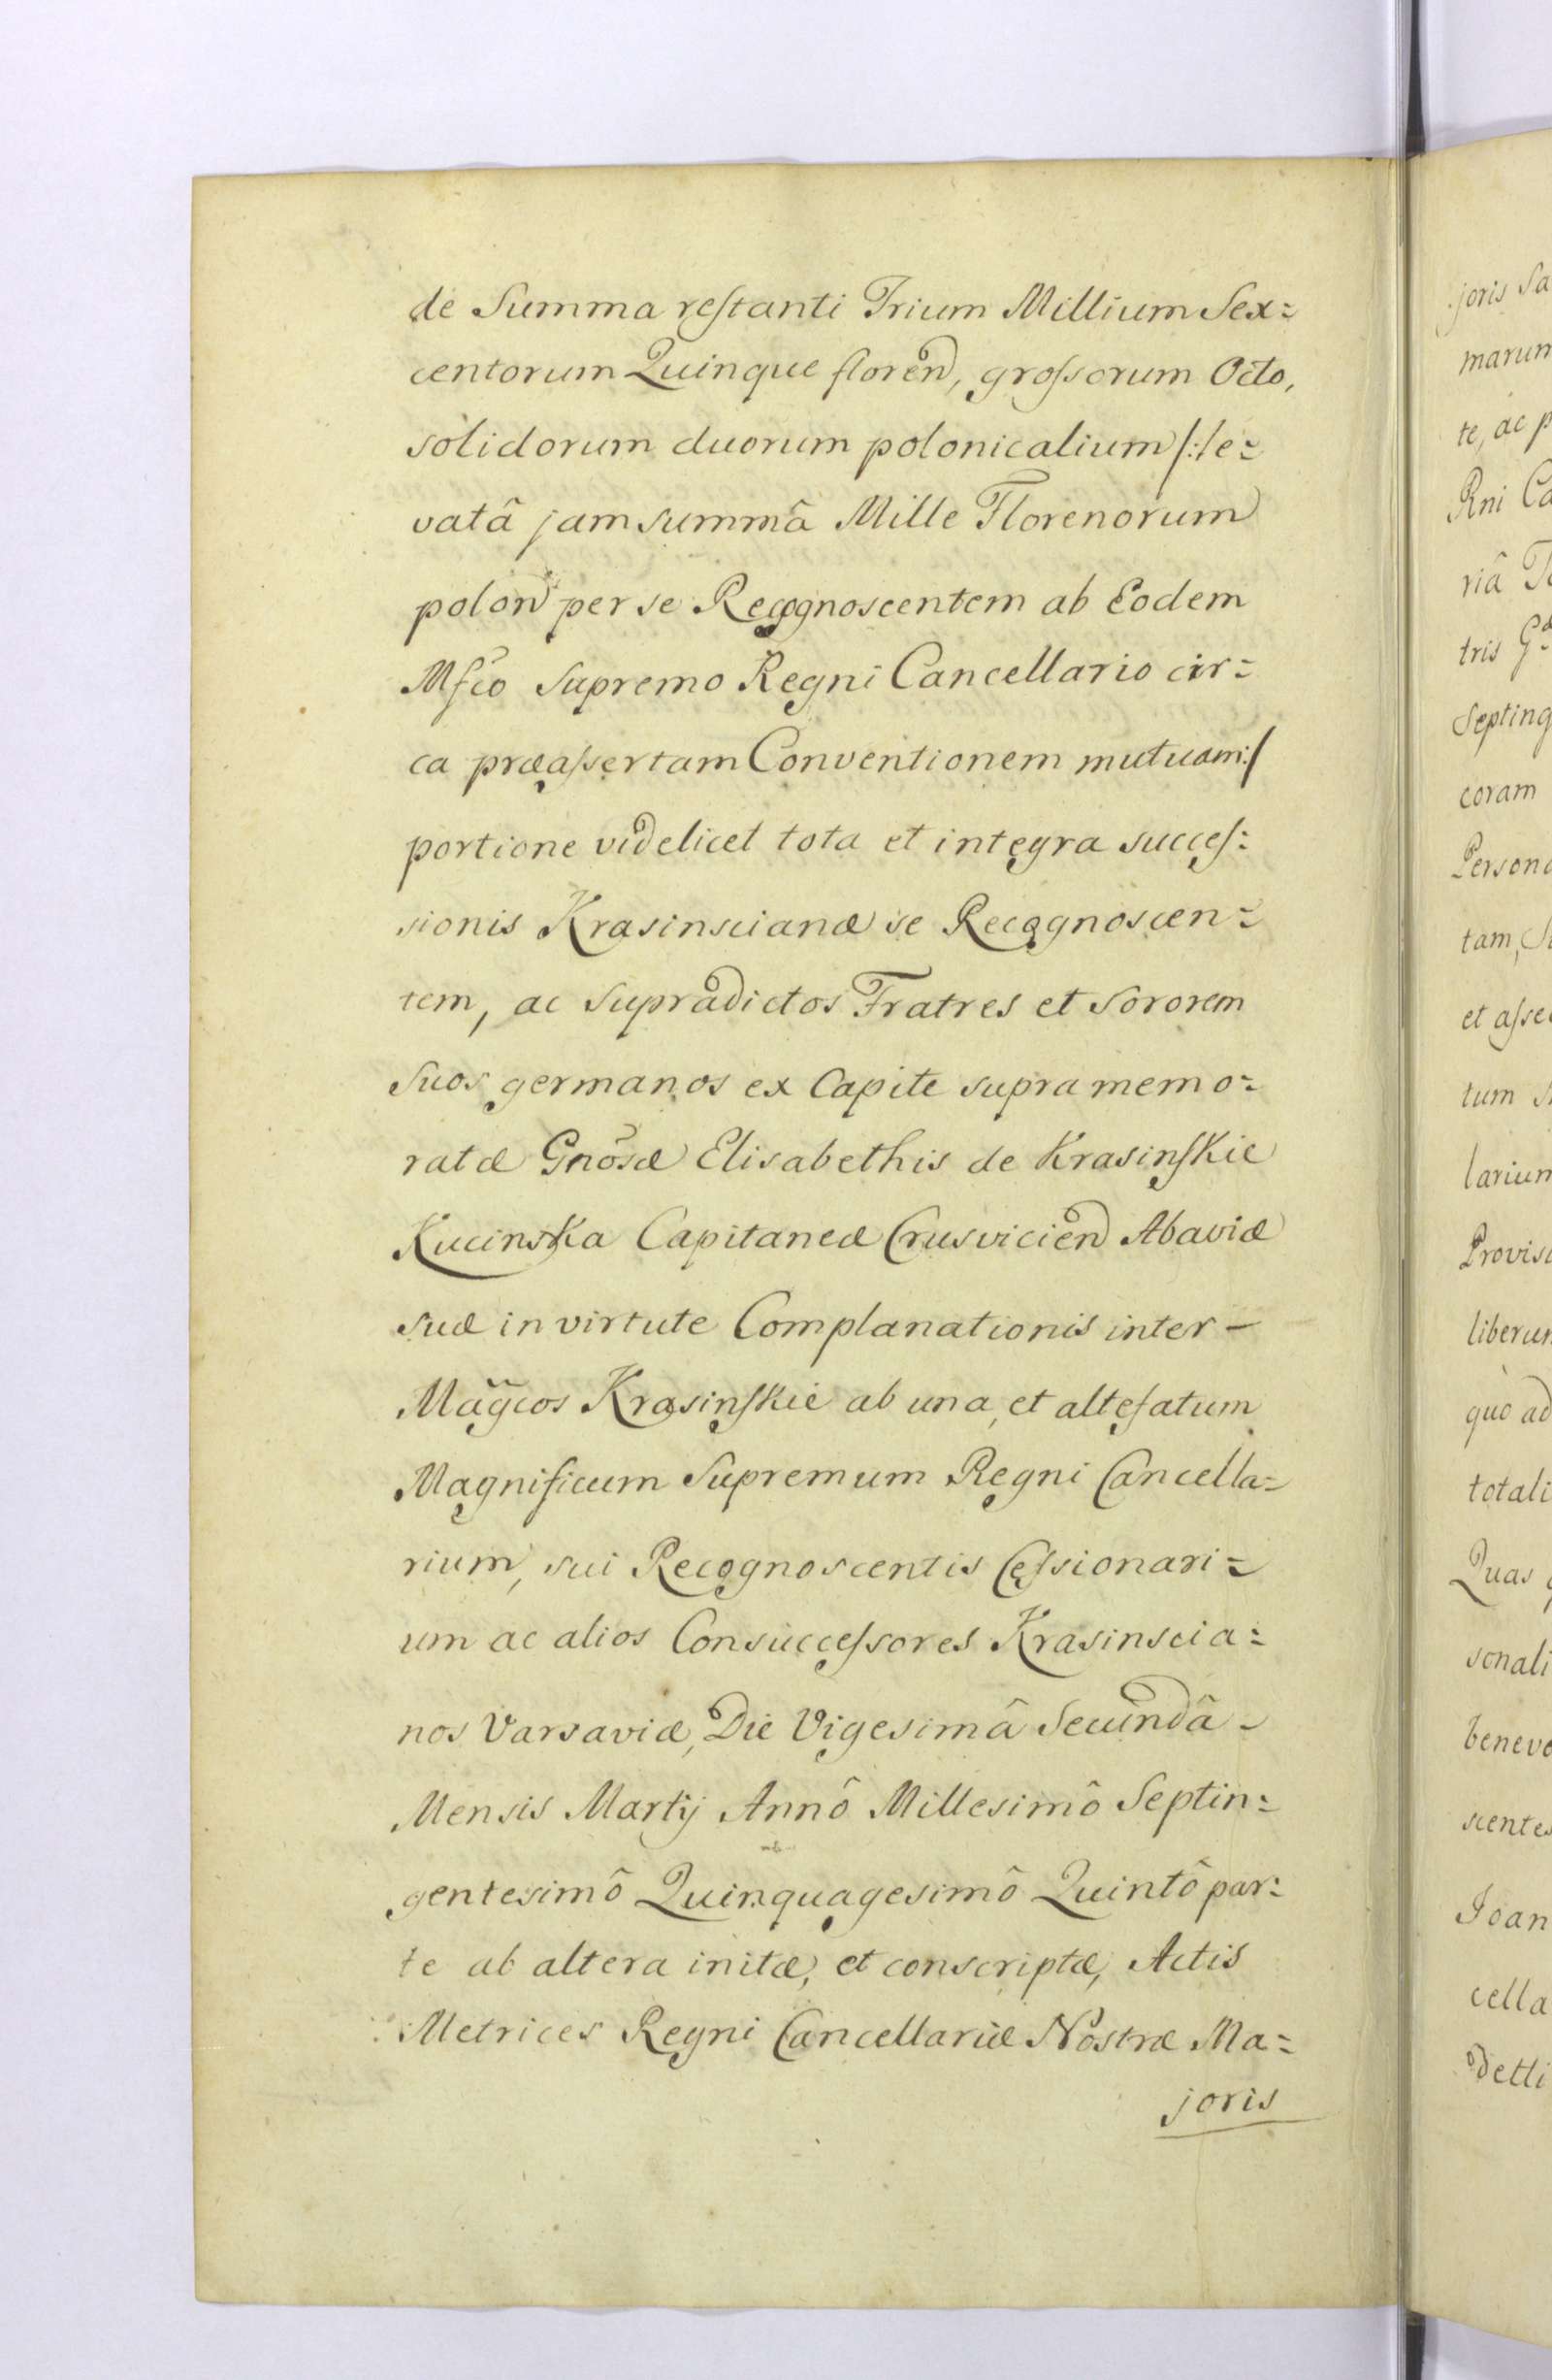 de Summa restanti Trium Millium Sex=
centorum Quinque floren, grossorum Octo,
solidorum duorum polonicalium /:le=
vatâ jam summâ Mille Florenorum
polon per se Recognoscentem ab Eodem
Mfco Supremo Regni Cancellario cir=
ca præassertam Conventionem mutuam:/
portione videlicet tota et integra succes=
sionis Krasinscianæ se Recognoscen=
tem, ac supradictos Fratres et Sororem
Suos germanos ex Capite supra memo=
ratæ Gnosæ Elisabethis de Krasinskie
Kucinska Capitaneæ Crusvicien Abaviæ
suæ in virtute Complanationis inter -
Magcos Krasinskie ab una, et altefatum
Magnificum Supremum Regni Cancella=
rium, sui Recognoscentis Cessionari=
um ac alios Consuccessores Krasinscia=
nos Varsaviæ, Die Vigesimâ Secundâ -
Mensis Martij Annô Millesimô Septin=
gentesimô Quinquagesimô Quintô par=
te ab altera initæ, et conscriptæ, Actis
Metrices Regni Cancellariæ Nostræ Ma=
joris
joris Sa
marum
te, ac p
Rni Ca
riâ
tris
Septing
coram
Person
tam,
et asse
tum
larium
Provis
liberum
quo ad
totali
Quas
sonali
benevo
scentes
Joan
cella
detli